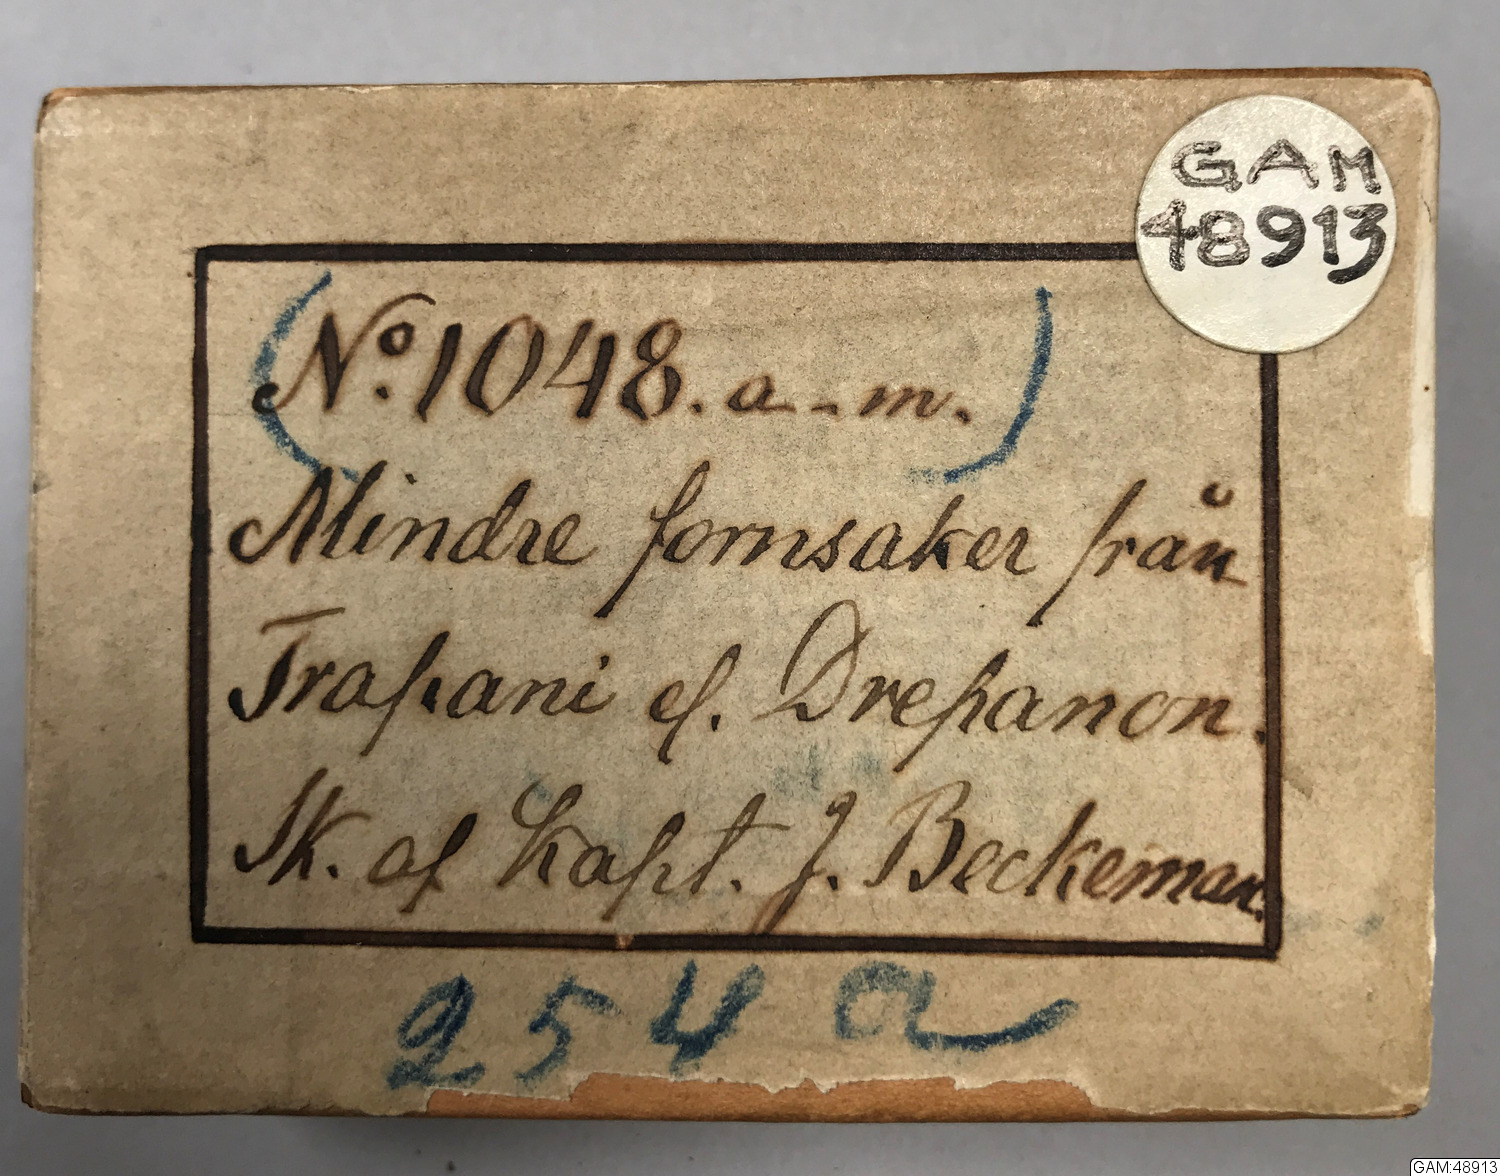 GAM
48913
(No. 1048. a - m.)
Mindre fornsaker från
Trapani cf. Drepanon.
Sk. af Kapt. J. Beckeman.
254 a
GAM:48913